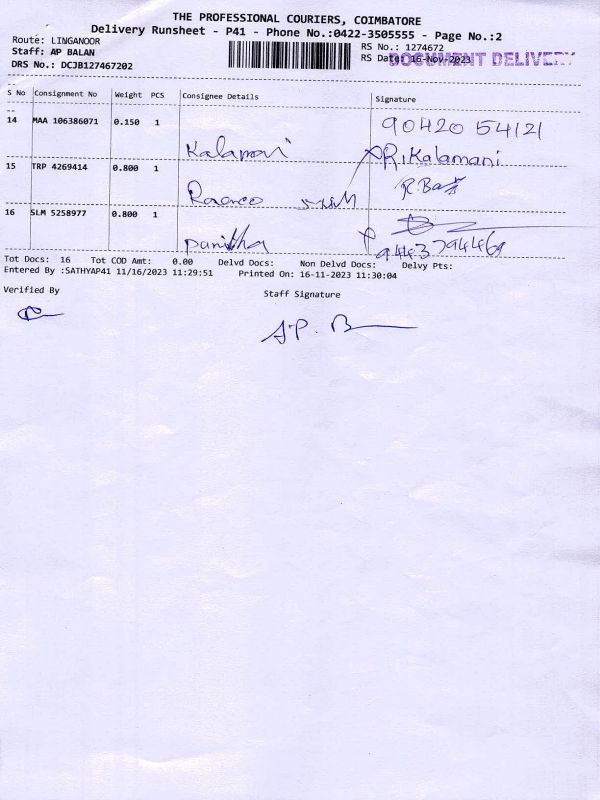 THE PROFESSIONAL COURIERS, COIMBATORE
Delivery Runsheet - P41 - Phone No.:0422-3505555 - Page No.:2
Route: LINGANOOR
RS No.: 1274672
Staff: AP BALAN
RS Date: 16-Nov-2023
DOCUMENT DELIVERY
DRS No.: DCJB127467202
S No Consignment No Weight PCS Consignee Details Signature
14 MAA 106386071 0.150 1
90420 54121
Kalamani R.Kalamani
15 TRP 4269414 0.800 1
16 SLM 5258977 0.800 1
9443794469
Tot Docs: 16 Tot COD Amt: 0.00 Delvd Docs: Non Delvd Docs: Delvy Pts:
Entered By :SATHYAP41 11/16/2023 11:29:51 Printed On: 16-11-2023 11:30:04
Verified By
Staff Signature
A.P. B